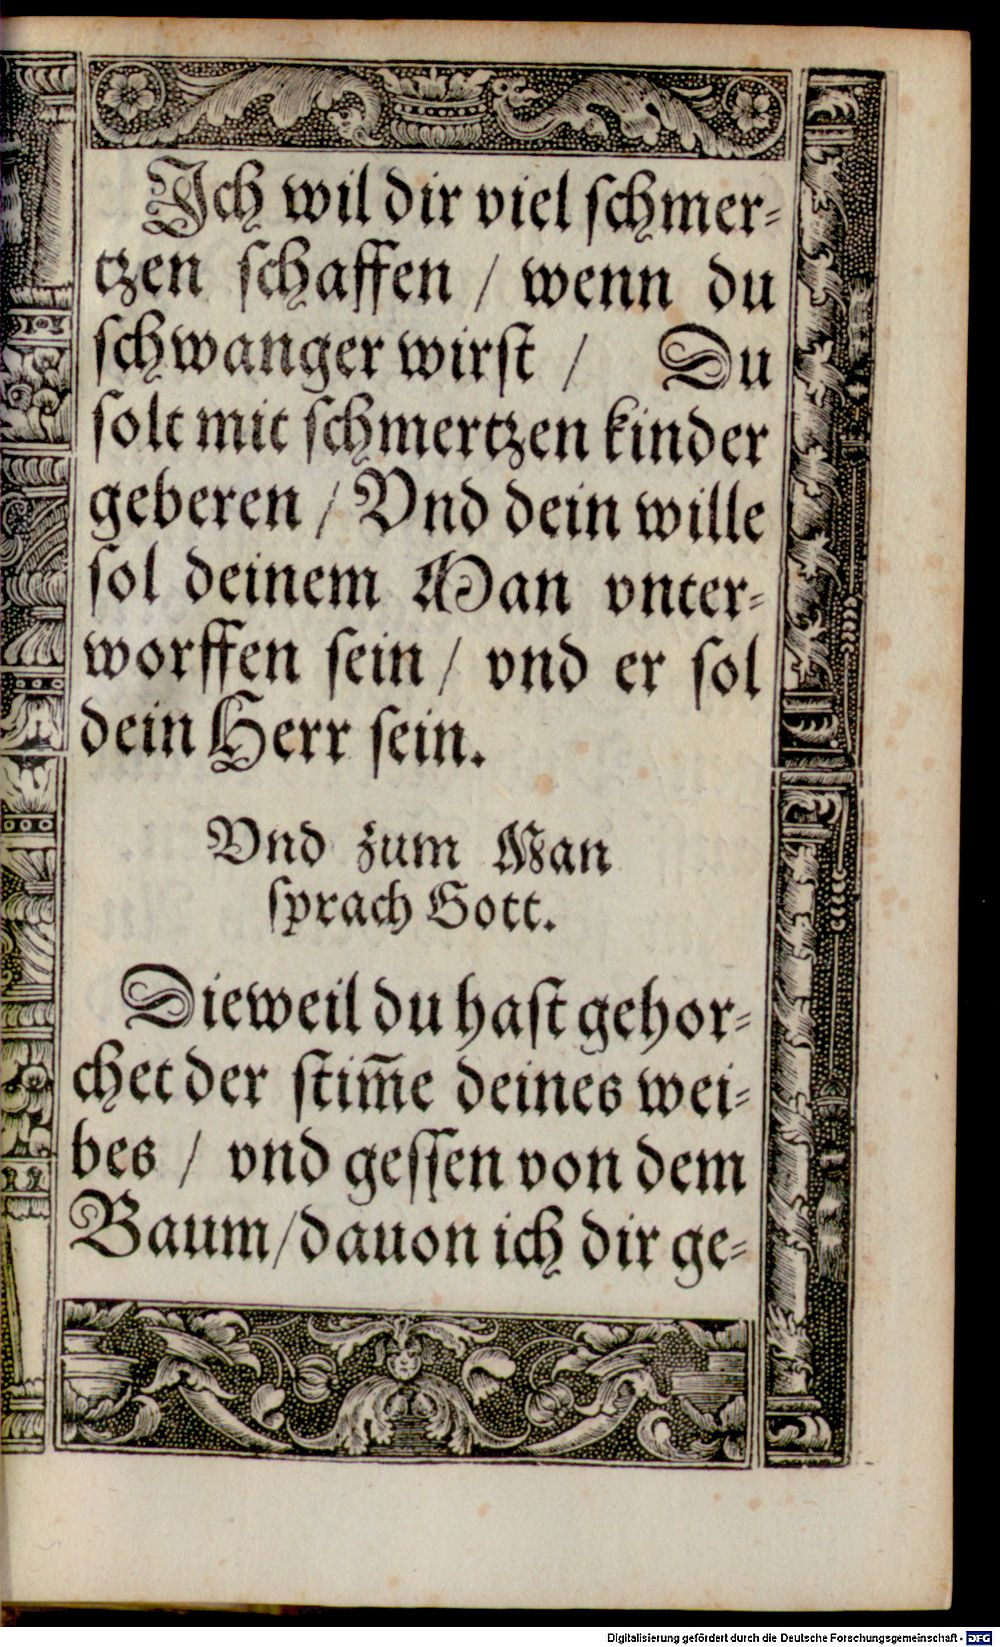 Ich wil dir viel ſchmer⸗
tzen ſchaffen / wenn du
ſchwanger wirſt / Du
ſolt mit ſchmertzen kinder
geberen / Vnd dein wille
ſol deinem Man vnter⸗
worffen ſein / vnd er ſol
dein Herr ſein.
Vnd zum Man
ſprach Gott.
Dieweil du haſt gehor⸗
chet der ſtim̃e deines wei⸗
bes / vnd geſſen von dem
Baum / dauon ich dir ge⸗
Digitalisierung gefördert durch die Deutsche Forschungsgemeinschaft - DFG